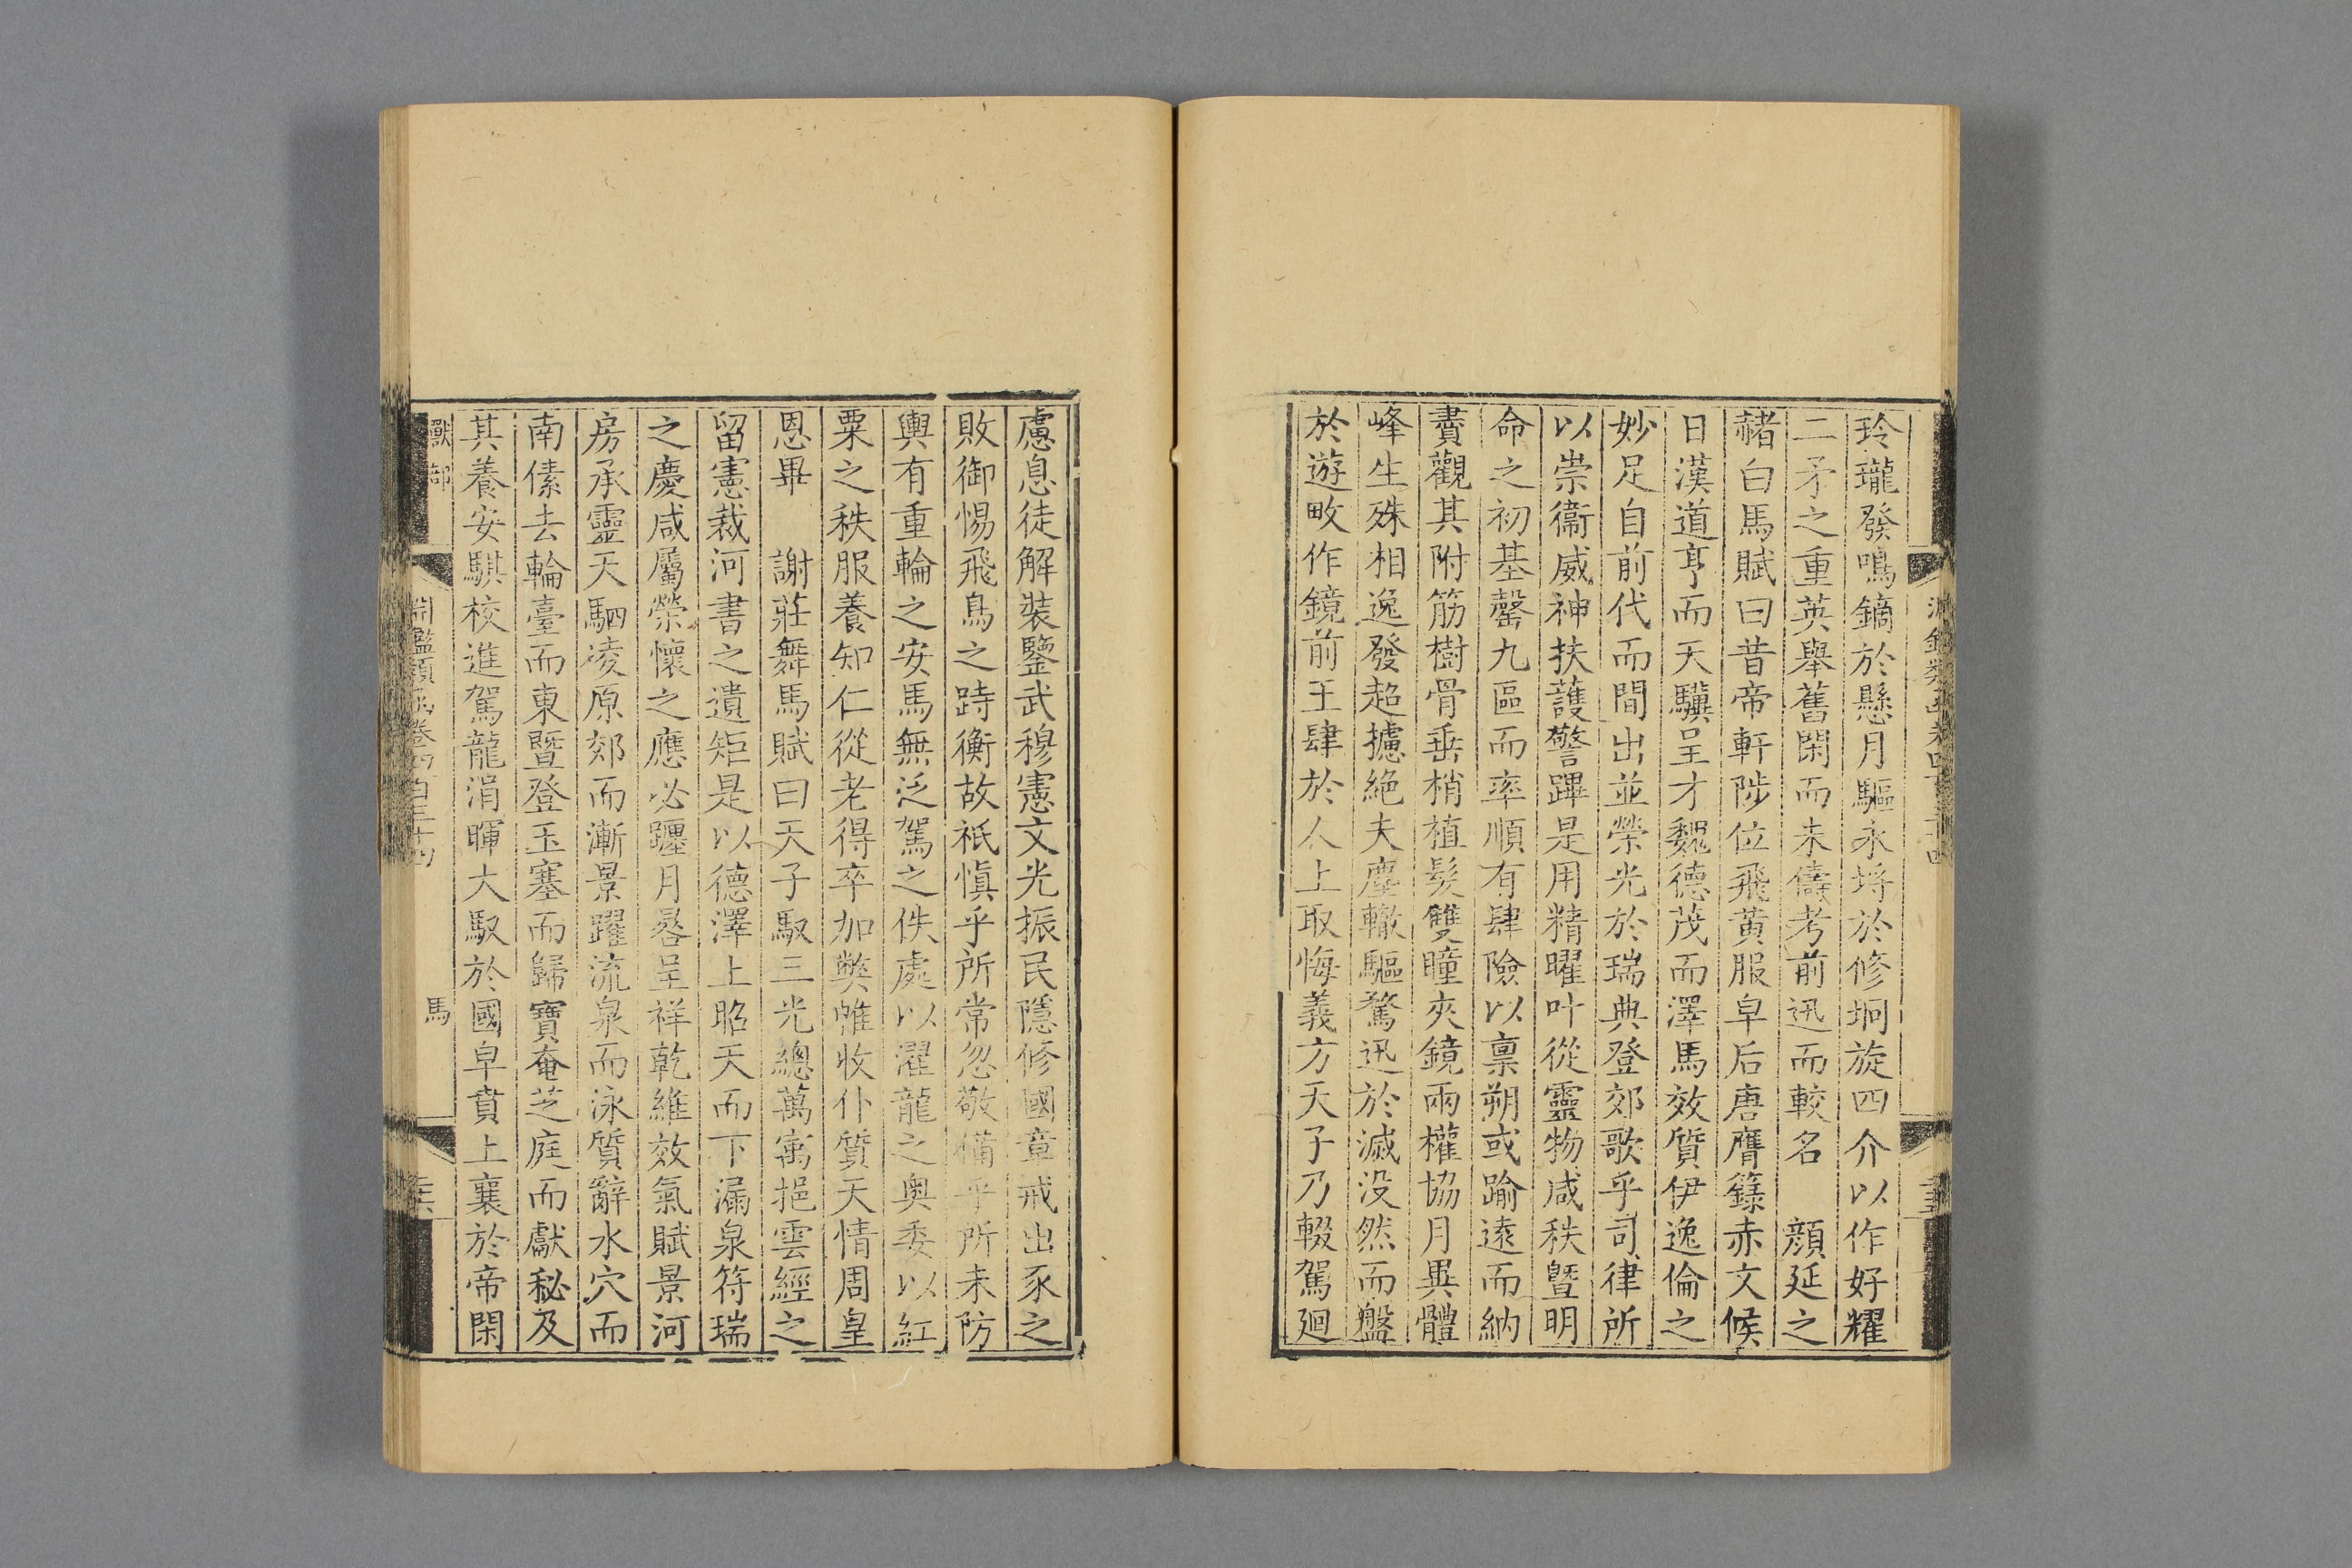 玲瓏發鳴鏑於懸月驅永埒於修坰旋四介以作好耀
二矛之重英舉舊閑而未儔考前迅而較名　顏延之
赭白馬賦曰昔帝軒陟位飛黃服皁后唐膺籙赤文候
日漢道亨而天驥呈才魏德茂而澤馬效質伊逸倫之
妙足自前代而間出並榮光於瑞典登郊歌乎司律所
以崇衞威神扶護警蹕是用精曜叶從靈物咸秩暨明
命之初基罄九區而率順有肆險以稟朔或踰遠而納
賮觀其附筋樹骨垂梢植髮雙瞳夾鏡兩權協月異體
峰生殊相逸發超攄絕夫塵轍驅騖迅於滅没然而盤
於遊畋作鏡前王肆於人上取悔義方天子乃輟駕迴
慮息徒解裝鑒武穆憲文光振民隱修國章戒出豕之
敗御惕飛鳥之跱衡故祇慎乎所常忽敬備乎所未防
輿有重輪之安馬無泛駕之佚處以濯龍之奧委以紅
粟之秩服養知仁從老得卒加弊帷收仆質天情周皇
恩畢　謝莊舞馬賦曰天子馭三光總萬寓挹雲經之
留憲裁河書之遺矩是以德澤上昭天而下漏泉符瑞
之慶咸屬榮懷之應必躔月晷呈祥乾維效氣賦景河
房承靈天駟凌原郊而漸景躍流泉而泳質辭水穴而
南傃去輪臺而東暨登玉塞而歸寶奄芝庭而獻秘及
其養安騏校進駕龍涓暉大馭於國皁賁上襄於帝閑
獸部　淵鑑類函卷四百三十四　馬